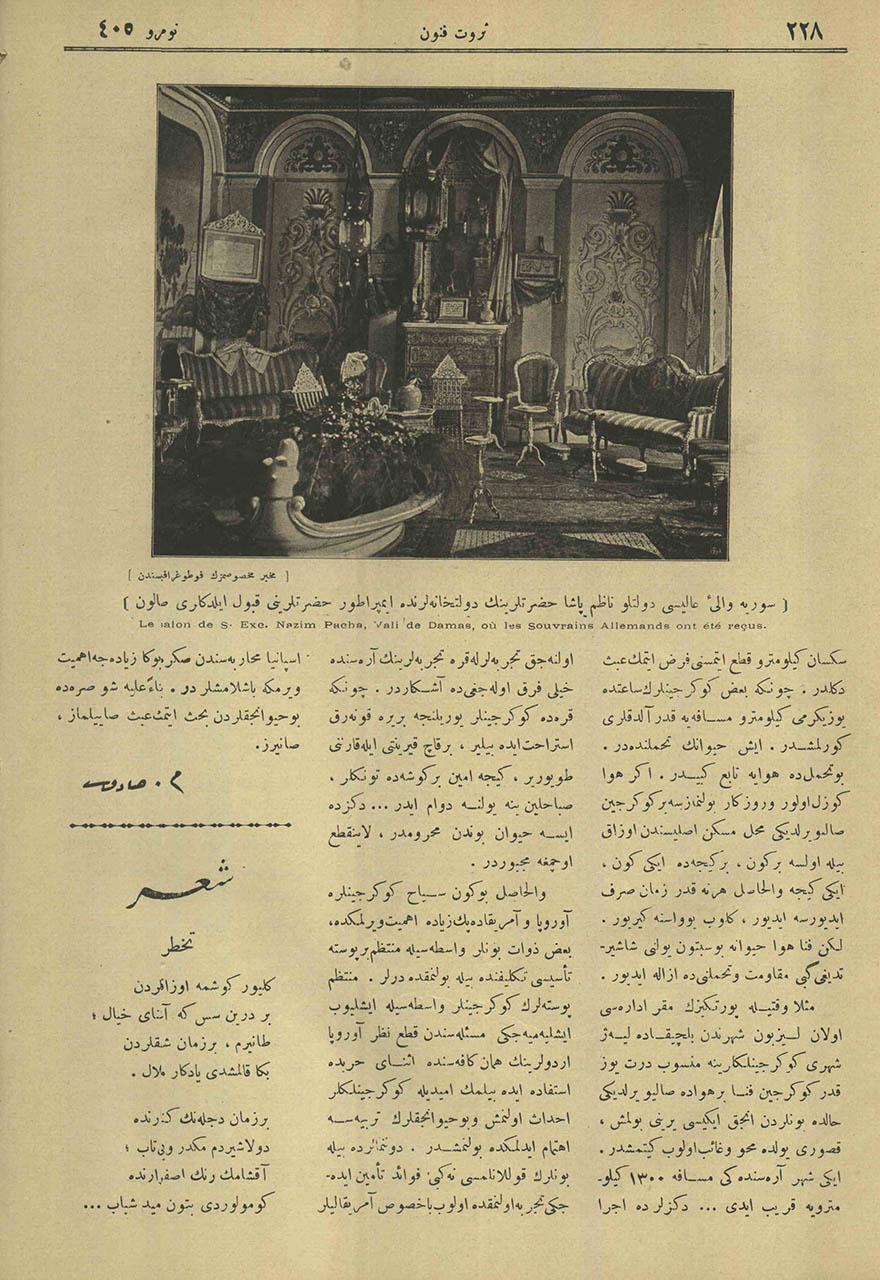 ٢٢٨
ثروت فنون
نومرو ٤٠٥
[ مخبر مخصوصمزك فوطوغرافيسندن ]
( سوريه والیٔ عاليسی دولتلو ناظم پاشا حضرتلرينك دولتخانه‌لرنده ايمپراطور حضرتلرينی قبول ايلدكلری صالون )
Le salon de S. Exc. Nazim Pacha, Vali de Damas, où les Souvrains Allemands ont été reçus.
سكسان كيلومترو قطع ايتمسنی فرض ايتمك عبث
دكلدر . چونكه بعض كوكرجينلرك ساعتده
يوزيكرمی كيلومترو مسافه‌يه قدر آلدقلری
كورلمشدر . ايش حيوانك تحملنده‌در .
بوتحمل‌ده هوايه تابع كبيدر . اكر هوا
كوزل اولور وروزكار بولنمازسه بركوكرجين
صاليويرلديكی محل مسكن اصليسندن اوزاق
بيله اولسه بركون ، بركيجه‌ده ايكی كون ،
ايكی كيجه والحاصل هرنه قدر زمان صرف
ايديورسه ايديور ، كلوب يوواسنه كيريور .
لكن فنا هوا حيوانه بوسبتون يولنی شاشير-
تديغی كبی مقاومت وتحملنی‌ده ازاله ايديور .
مثلا وقتيله پورتكيزك مقر اداره‌سی
اولان ليزبون شهرندن بلچيقاده ليه‌ژ
شهری كوكرجينلكلرينه منسوب درت يوز
قدر كوكرجين فنا برهواده صاليويرلديكی
حالده بونلردن انجق ايكيسی يرينی بولمش ،
قصوری يولده محو وغائب اولوب كيتمشدر .
ايكی شهر آره‌سنده‌كی مسافه ١٣٠٠ كيلو-
مترويه قريب ايدی ... دكزلرده اجرا
اولنه‌جق تجربه‌لرله قره تجربه‌لرينك آره‌سنده
خيلی فرق اوله‌جغی‌ده آشكاردر . چونكه
قره‌ده كوكرجينلر يوريلنجه بريره قونه‌رق
استراحت ايده بيلير ، برقاچ قيرينتی ايله قارننی
طويورير ، كيجه امين بركوشه‌ده تونكلر ،
صباحلين ينه يولنه دوام ايدر ... دكزده
ايسه حيوان بوندن محرومدر ، لاينقطع
اوچمغه مجبوردر .
والحاصل بوكون سياح كوكرجينلره
آوروپا و آمريقاده پك زياده اهميت ويرلمكده،
بعض ذوات بونلر واسطه‌سيله منتظم برپوسته
تأسيسی تكليفنده بيله بولنمقده درلر . منتظم
پوسته‌لرك كوكرجينلر واسطه‌سيله ايشليوب
ايشليه‌ميه‌جكی مسئله‌سندن قطع نظر آوروپا
اردولرينك همان كافه‌سنده اثنای حربده
استفاده ايده بيلمك اميديله كوكرجينلكلر
احداث اولنمش وبوحيوانجقلرك تربيه‌سنه
اهتمام ايدلمكده بولنمشدر . دوننمالرده بيله
بونلرك قوللانلمسی نه كبی فوائد تأمين ايده-
جكی تجربه اولنمقده اولوب باخصوص آمريقاليلر
اسپانيا محاربه‌سندن صكره بوكا زياده‌جه اهميت
ويرمكه باشلامشلردر . بناءً عليه شو صره‌ده
بوحيوانجقلردن بحث ايتمك عبث صاييلماز ،
صانيرز.
م . صادق
شعر
تخطر
كليور كوشمه اوزاقردن
بر درين سس كه آشنای خيال ؛
طانيرم ، برزمان شفقلردن
بكا قالمشدی يادكار ملال .
برزمان دجله‌نك كنارنده
دولاشيردم مكدر وبی تاب ؛
آقشامك رنك اصفرارنده
كومولوردی بتون ميد شباب ...